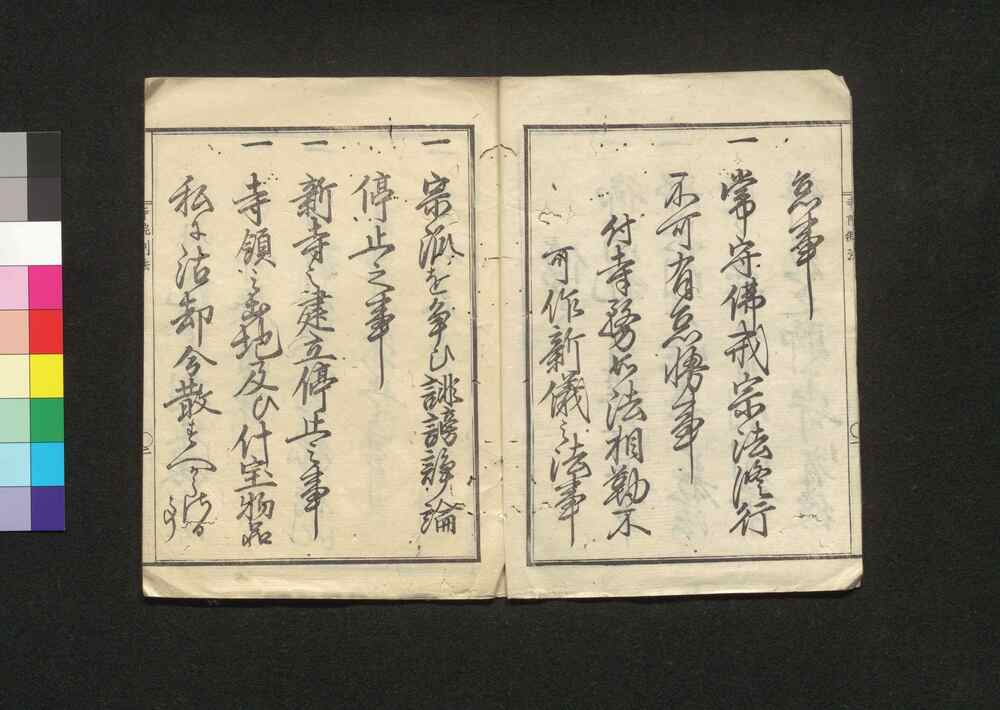 怠事
一 常守佛戒宗法修行
不可有怠惰事
付寺務如法相勤不
可作新儀之法事
一 宗派を争ひ誹謗諍論
停止之事
一 新寺之建立停止之事
一 寺領之田地及ひ付宝物等
私に沽却令散